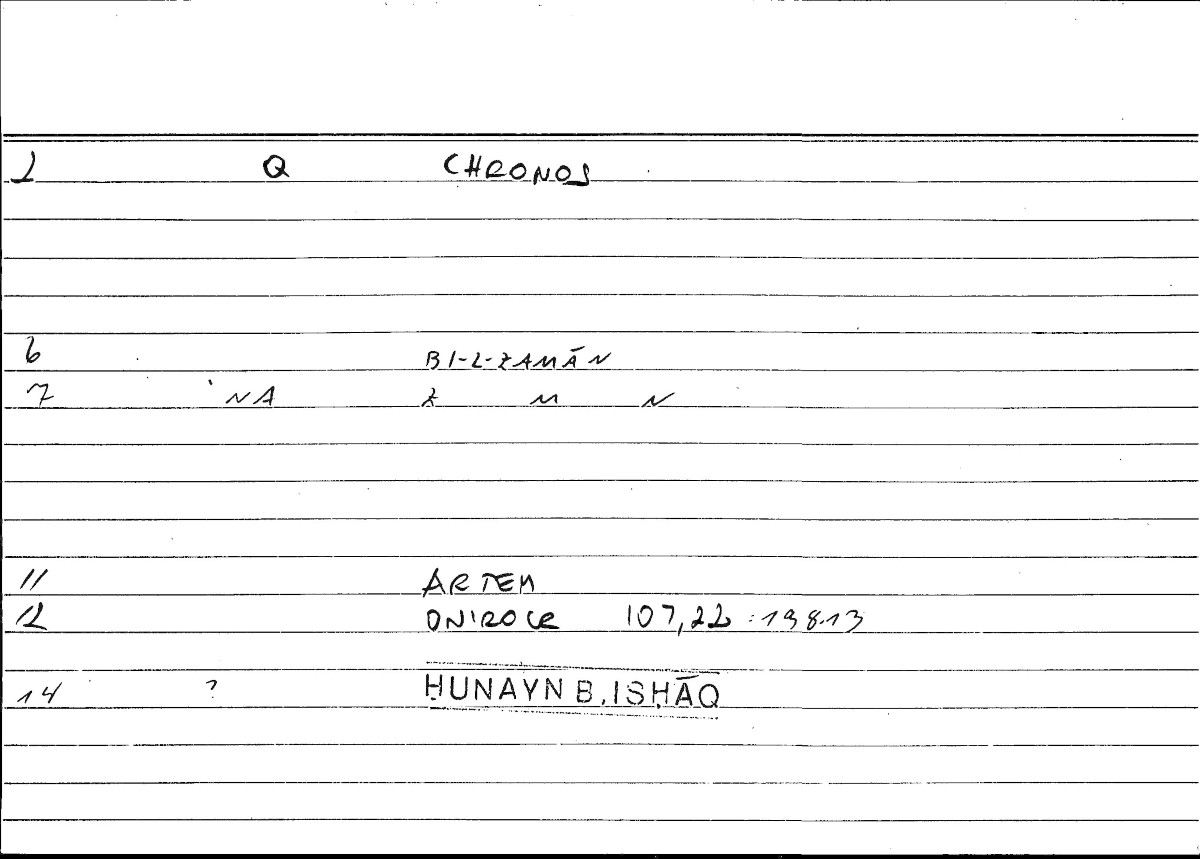 2 Q CHRONOS
6 BI-L-ZAMĀN
7 NA Z M N
11 ARTEM
12 ONIROCR 107,22 : 198.13
14 ? ḤUNAYN B. ISḤĀQ